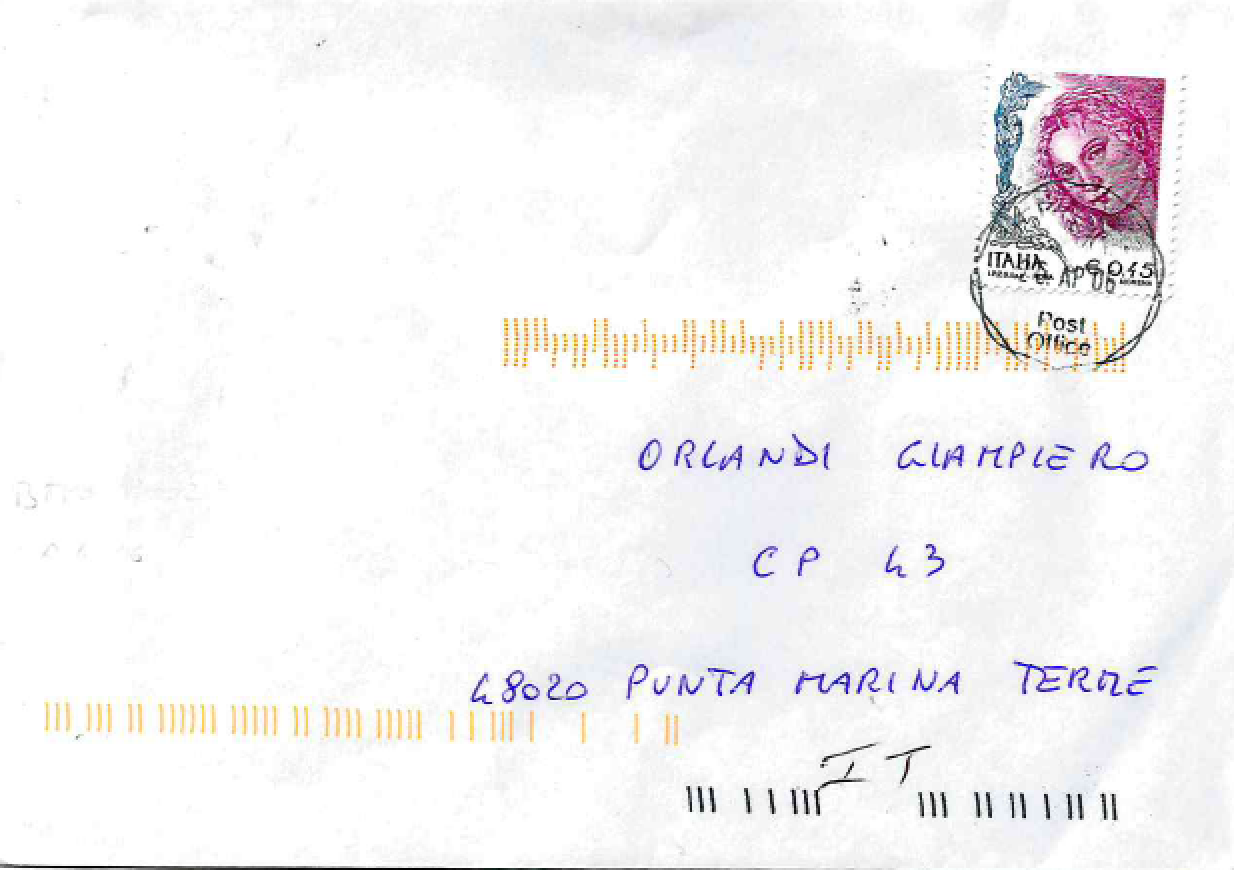 ITALIA € 0,45
AP 06
Post
Office
ORLANDI GIAMPIERO
CP 43
48020 PUNTA MARINA TERME
IT